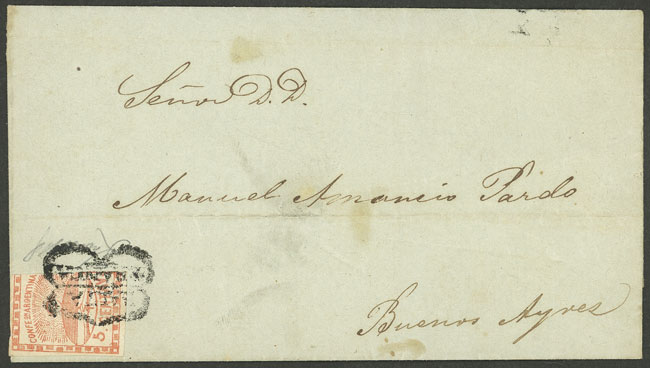 Señor D. D.
Manuel Amancio Pardo
Buenos Ayres
CONFEDARGENTINA
5